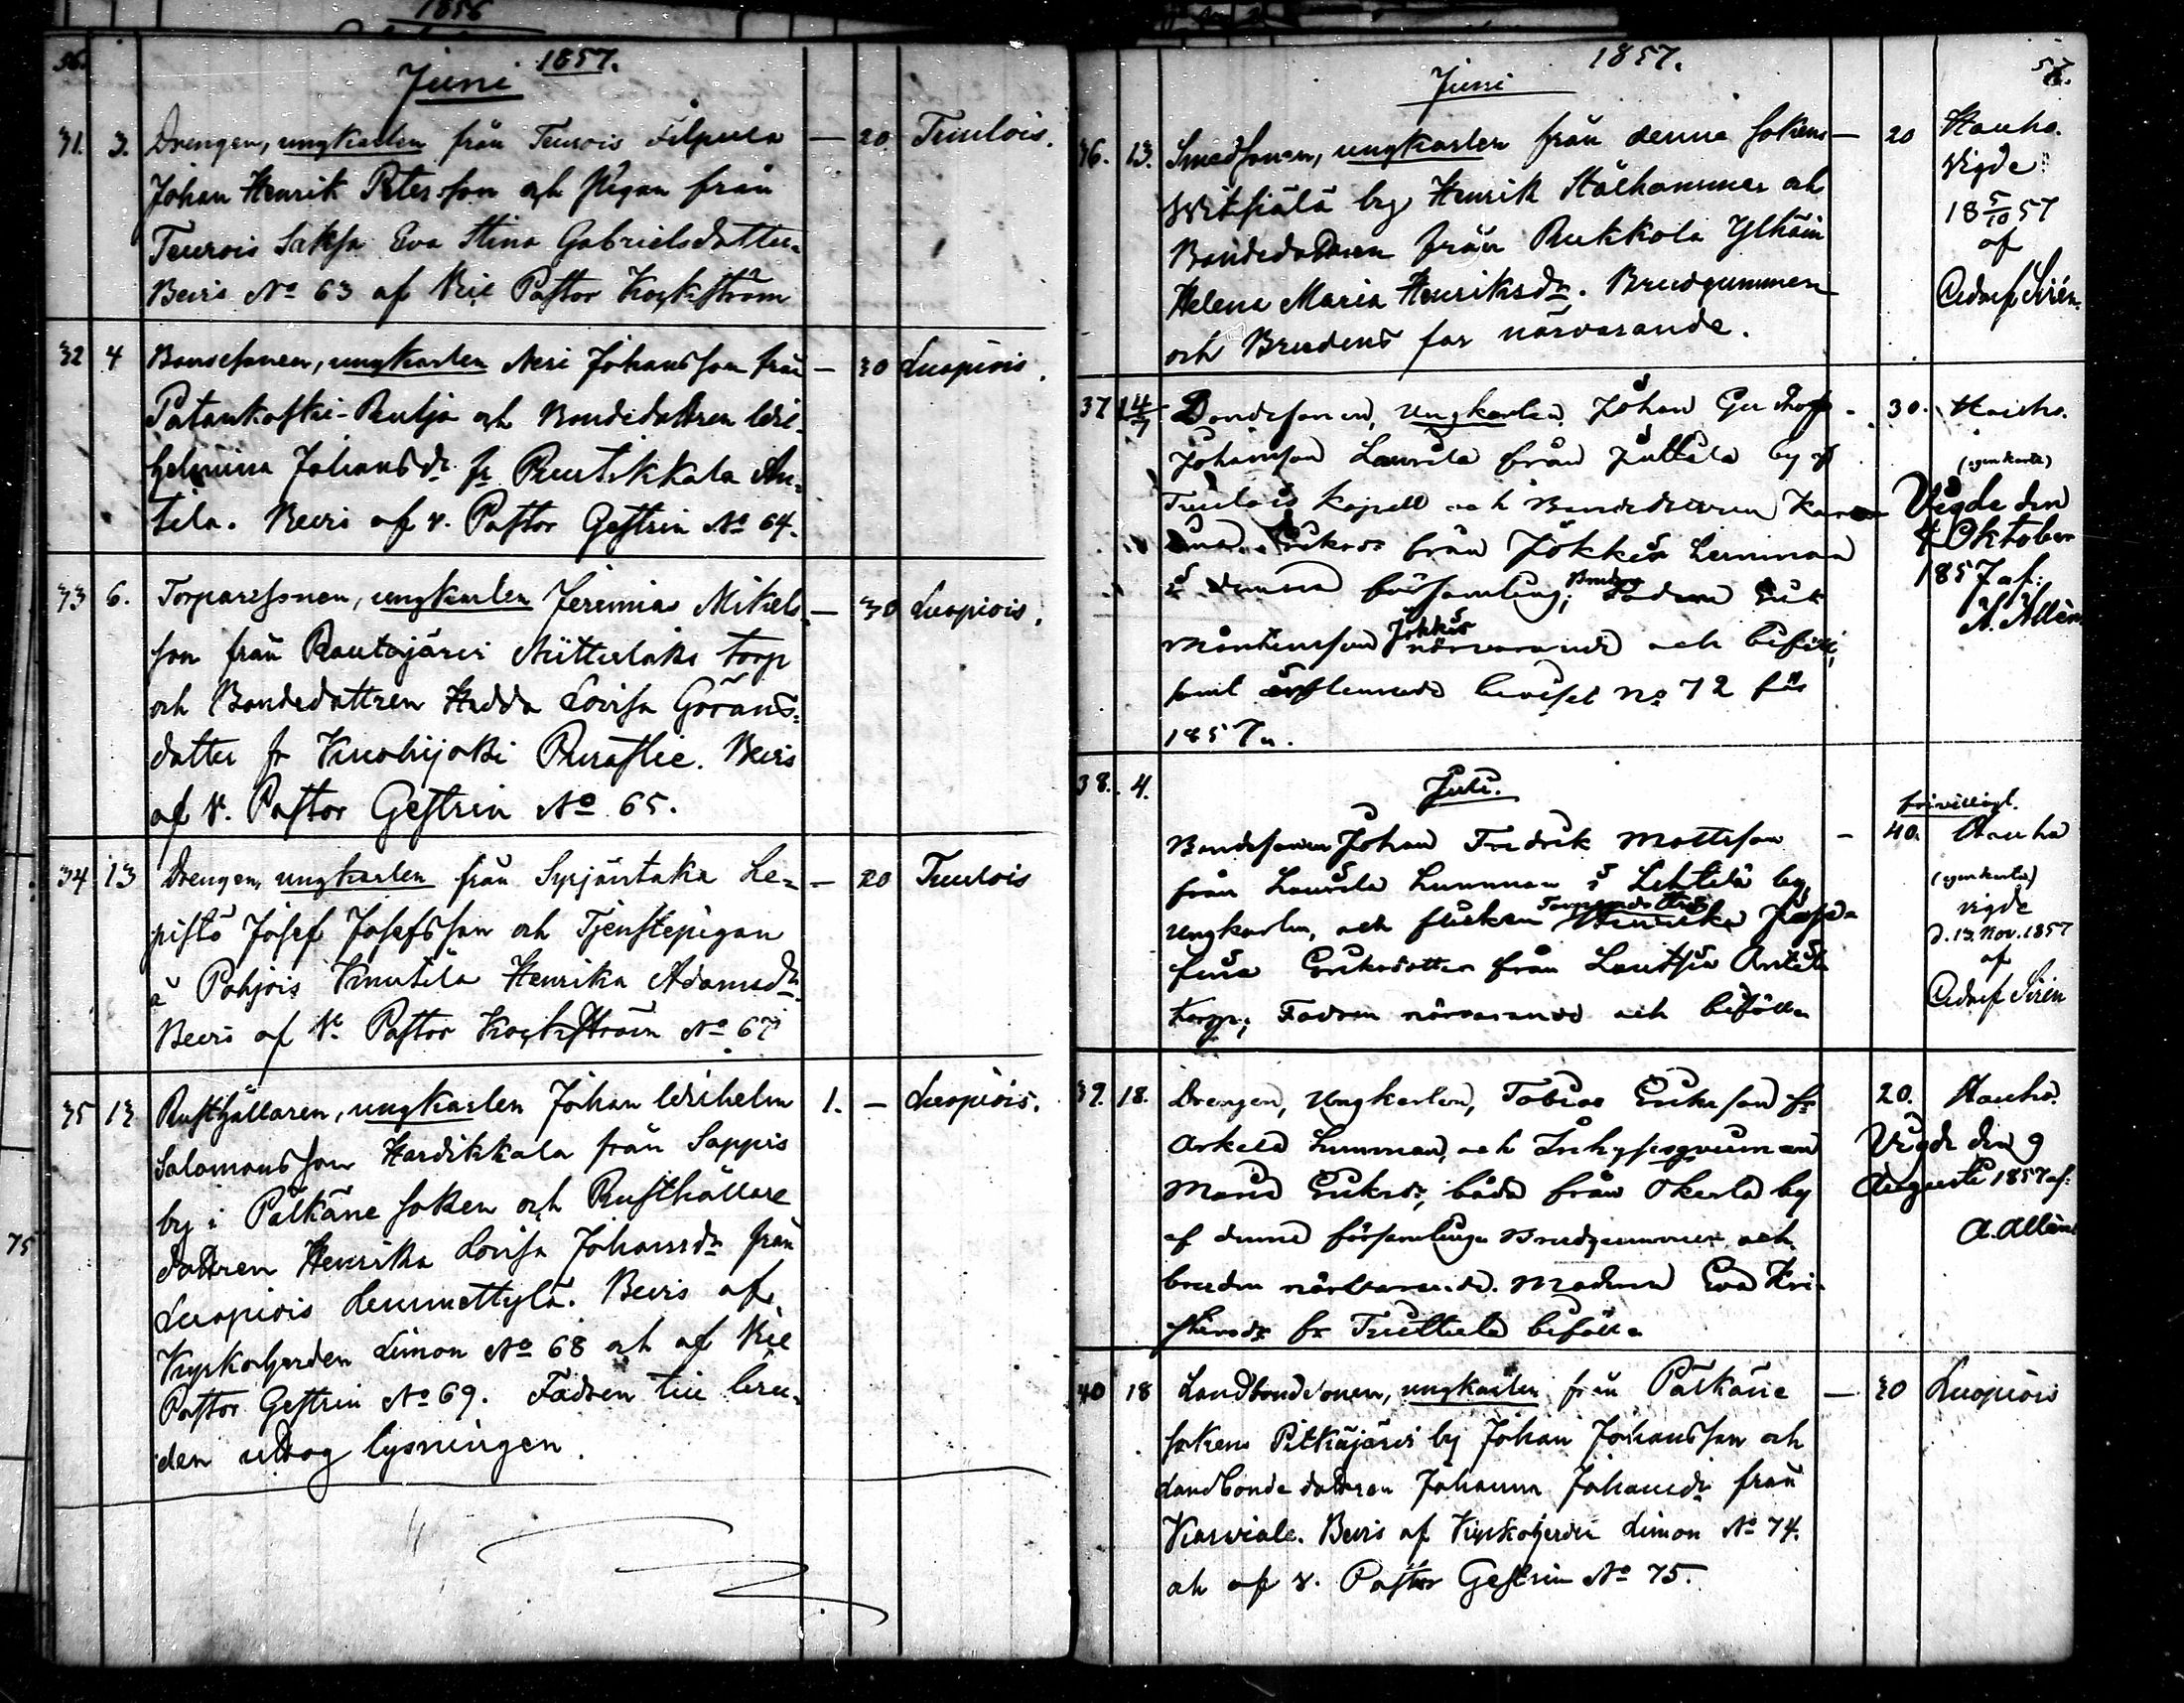 1856
56.
1857.
Juni
31. 3. Drengen, ungkarlen från Teurois Filpula — 20 Teulois.
Johan Henrik Petersson och Pigan från
Teurois Saksa Eva Stina Gabrielsdotter
Bevis No 63 af Vice Pastor Kockström
32 4 Bondesonen, ungkarlen Johansson från — 30 Luopiois.
Patankoski-Rulja och Bondedottren Wil-
helmina Johansdr fr Ruutikkala An-
tila. Bevis af v. Pastor Gestrin No 64.
33 6. Torparesonen, ungkarlen Jeremias Mikels- — 30 Luopiois.
son från Rautajärvi torp
och Bondedottren Hedda Lovisa Görans-
dotter fr Kuohijoki. Bevis
af v. Pastor Gestrin No 65.
34 13 Drengen, ungkarlen från Syrjäntaka Le- — 20 Tuulois
pistö Josef Josefsson och Tjenstepigan
å Pohjois Knutila Henrika Adamsdr
Bevis af V. Pastor Kockström No 67
35 13 Rusthållaren, ungkarlen Johan Wilhelm 1. — Luopiois.
Salomonsson Hardikkala från Sappis
by i Pälkäne socken och Rusthållare
dottren Henrika Lovisa Johansdr från
Luopiois Lemmettylä. Bevis af
Kyrkoherden Limon No 68 och af Vice
Pastor Gestrin No 69. Fadren till bru-
den uttog lysningen.
75
1857. 57.
Juni
36. 13. Smedsonen, ungkarlen från denna sokens — 20 Hauho.
by Henrik Stålhammar och
Bondedottren från Rukkola Ylhäin
Helena Maria Henriksdr. Brudgummen
och Brudens far närvarande.
Vigde
18 5/10 57
af
Adolf Sirén.
37 14/7 Bondesonen, ungkarlen Johan - 30. Hauho.
Johansson Laurila från Juttila by af
Tuulois kapell och Bondedottren
Eriksdr från Jokkis Lemman
i denna församling; Brudens Fadren Erik
Mårtensson Jokkis närvarande och biföll,
samt aflemnade beviset No 72 för
1857.
Vigde den
4 Oktober
1857 af:
A. Allén
38. 4. Juli.
Bondesonen Johan Fredrik Mattsson — 40. Hauho
från Laurila Lemman i Lehtilä by,
ungkarlen, och flickan Henrika Jose-
fina Eriksdotter från Lautsia Anttila
torp; Fadren närvarande och biföll.
frivilligt.
vigde
d. 13. Nov. 1857
af
Adolf Sirén
39. 18. Drengen, Ungkarlen, Tobias Eriksson fr 20. Hauho.
Lemman, och Inhysesqvinnan
Maria Eriksdr, båda från Okerla by
af denna församling. Brudgummen och
bruden närvarande. Modren Eva Kri-
stersdr fr biföll.
Vigde den 9
Augusti 1857 af:
A. Allén
40 18 Landbondesonen, ungkarlen från Pälkäne — 30 Luopiois
sokens Pitkäjärvi by Johan Johansson och
Landbonde dottren Johanna Johansdr från
Karviala. Bevis af Kyrkoherden Limon No 74.
och af v. Pastor Gestrin No 75.